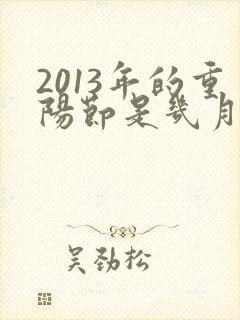 2013年的重
陽節是幾月
吴劲松